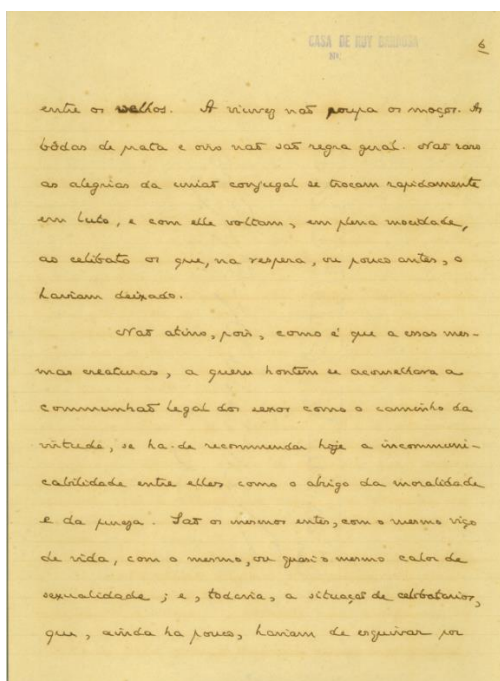 CASA DE RUY BARBOSA
Nº
6
entre os velhos. A viuvez não poupa os moços. As
bôdas de prata e oiro não são regra geral. Não raro
as alegrias da união conjugal se trocam rapidamente
em luto, e com elle voltam, em plena mocidade,
ao celibato os que, na vespera, ou pouco antes, o
haviam deixado.
Não atino, pois, como é que a essas mes-
mas creaturas, a quem hontem se aconselhava a
communhão legal dos sexos como o caminho da
virtude, se ha-de recommendar hoje a incommuni-
cabilidade entre elles como o abrigo da moralidade
e da pureza. São os mesmos entes, com o mesmo viço
de vida, com o mesmo, ou quasi o mesmo calor de
sexualidade; e, todavia, a situação de celibatarios,
que, ainda ha pouco, haviam de esquivar por